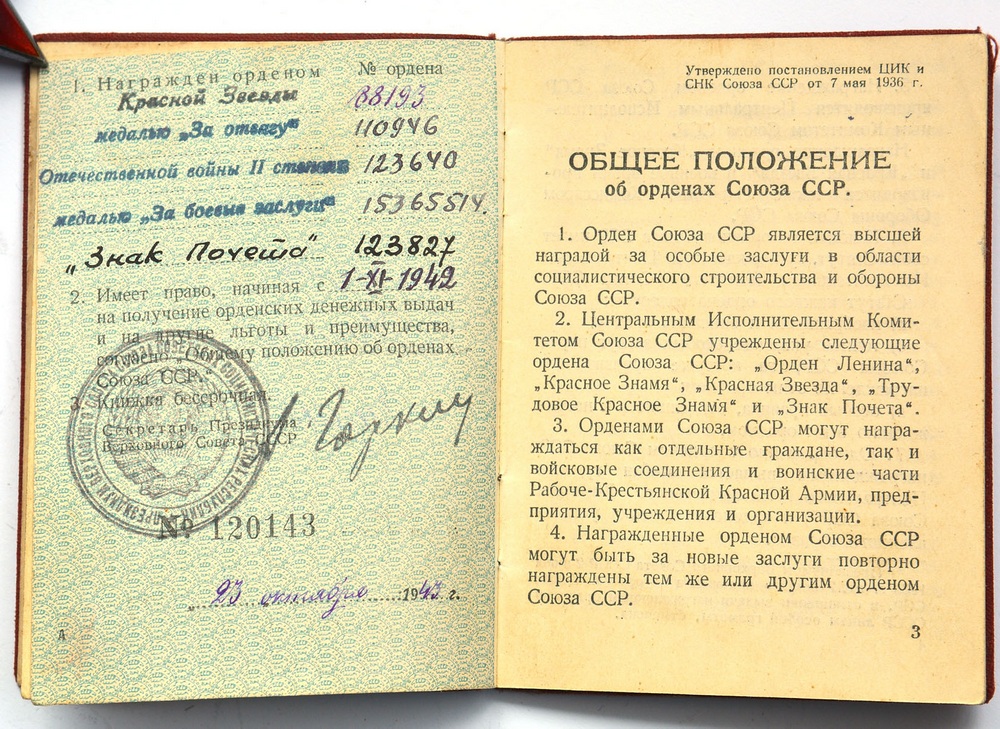 1. Награжден орденом № ордена
Красной Звезды 88193
медалью „За отвагу“ 110946
Отечественной войны II степени 123640
медалью „За боевые заслуги“ 15365514.
„Знак Почета“ 123827
2. Имеет право, начиная с 1-XI-1942
на получение орденских денежных выдач
и на другие льготы и преимущества,
согласно „Общему положению об орденах
Союза ССР.“
3. Книжка бессрочная.
Секретарь Президиума
Верховного Совета СССР
№ 120143
„23 октября 1943 г.
А
Утверждено постановлением ЦИК и
СНК Союза ССР от 7 мая 1936 г.
ОБЩЕЕ ПОЛОЖЕНИЕ
об орденах Союза ССР.
1. Орден Союза ССР является высшей
наградой за особые заслуги в области
социалистического строительства и обороны
Союза ССР.
2. Центральным Исполнительным Коми-
тетом Союза ССР учреждены следующие
ордена Союза ССР: „Орден Ленина“,
„Красное Знамя“, „Красная Звезда“, „Тру-
довое Красное Знамя“ и „Знак Почета“.
3. Орденами Союза ССР могут награ-
ждаться как отдельные граждане, так и
войсковые соединения и воинские части
Рабоче-Крестьянской Красной Армии, пред-
приятия, учреждения и организации.
4. Награжденные орденом Союза ССР
могут быть за новые заслуги повторно
награждены тем же или другим орденом
Союза ССР.
3